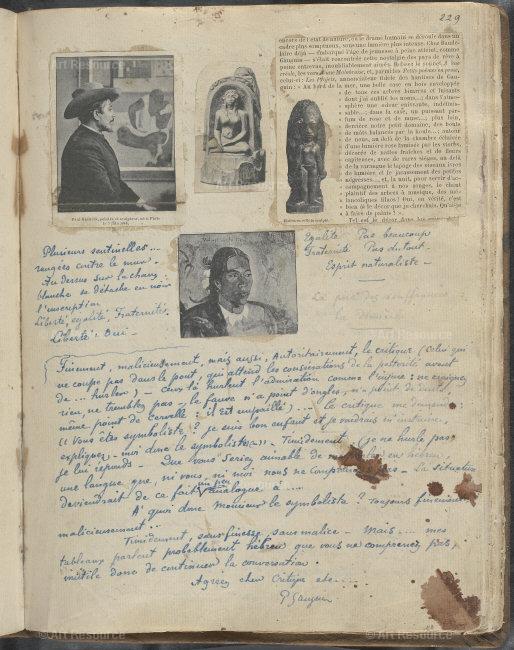 229
cadre plus somptueux, sous une lumière plus intense. Chez Baudelaire
Gauguin — s'était rencontrée cette nostalgie des pays de rêve à
peine entrevus,
créole, les vers
celui-ci : Les Projets,
guin : « Au bord de la mer, une belle case en bois enveloppée
de tous ces arbres bizarres et luisants
dont j'ai oublié les noms..., dans l'atmosphère
une odeur enivrante, indéfinissable...,
dans la case, un puissant parfum
de rose et de musc..., plus loin,
derrière notre petit domaine, des bouts
de mâts balancés par la houle... ; autour
de nous, au delà de la chambre éclairée
d'une lumière rose tamisée par les stores,
décorée de nattes fraîches et de fleurs
capiteuses, avec de rares sièges,
au delà
de la varangue le tapage des oiseaux ivres
de lumière et le jacassement des petites
négresses..., et, la nuit, pour servir d'accompagnement
à mes songes, le chant
plaintif des arbres à musique, des mélancoliques
filaos ! Oui, en vérité, c'est
bien là le décor que je cherchais.
à faire de palais ? »
Tel est le décor dans
Plusieurs sentinelles...
rangées contre le mur.
Au dessus sur la chaux
blanche se détache en noir
l'inscription
Liberté, égalité, Fraternité.
Liberté : Oui —
Egalité Pas beaucoup
Fraternité. Pas du tout.
Esprit naturaliste —
Finement, malicieusement, mais aussi, Autoritairement, le critique (Celui qui
ne coupe pas dans le pont, qui attend les conversations de la postérité avant
de ... hurler) — ceux là hurlent l'admiration comme l'injure : ne craignez
rien, ne tremblez pas — le fauve n'a point d'ongles, n'a point de dents,
même point de Cervelle : il est empaillé) .... le critique me demande
((Vous êtes symboliste ? je suis bon enfant et je voudrais m'instruire,
expliquez-moi donc le symbolisme)) — Timidement, (je ne hurle pas)
je lui réponds — Que vous seriez aimable de me parler en hébreu,
une langue que, ni vous, ni moi nous ne comprenons pas — La situation
deviendrait de ce fait un peu analogue à ....
A quoi donc Monsieur le symboliste ? Toujours finement
malicieusement...
Timidement, sans finesse, sans malice — Mais .... mes
tableaux parlent probablement hébreu que vous ne comprenez pas,
inutile donc de continuer la conversation.
Agréez cher Critique etc....
P Gauguin
© Art Resource
© Art Resource
© Art Resource